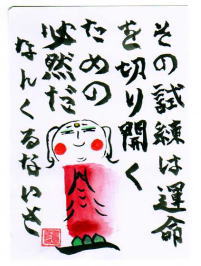 その試練は運命
を切り開く
ための
必然だ
なんくるないさ